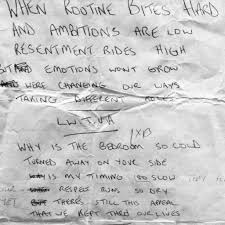 WHEN ROUTINE BITES HARD
AND AMBITIONS ARE LOW
RESENTMENT RIDES HIGH
BUT EMOTIONS WONT GROW
WERE CHANGING OUR WAYS
TAKING DIFFERENT ROADS
L.W.T.U.A
WHY IS THE BEDROOM SO COLD
TURNED AWAY ON YOUR SIDE
IS MY TIMING SO SLOW
RESPECT RUNS SO DRY
BUT THERES STILL THIS APPEAL
THAT WE KEPT THRU OUR LIVES